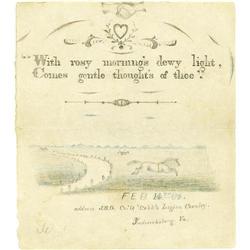 "With rosy morning's dewy light,
Comes gentle thoughts of thee".
FEB 14
address J.B.G. Co. "G" Cobb's Legion Cavalry.
Fredericksburg, Va.